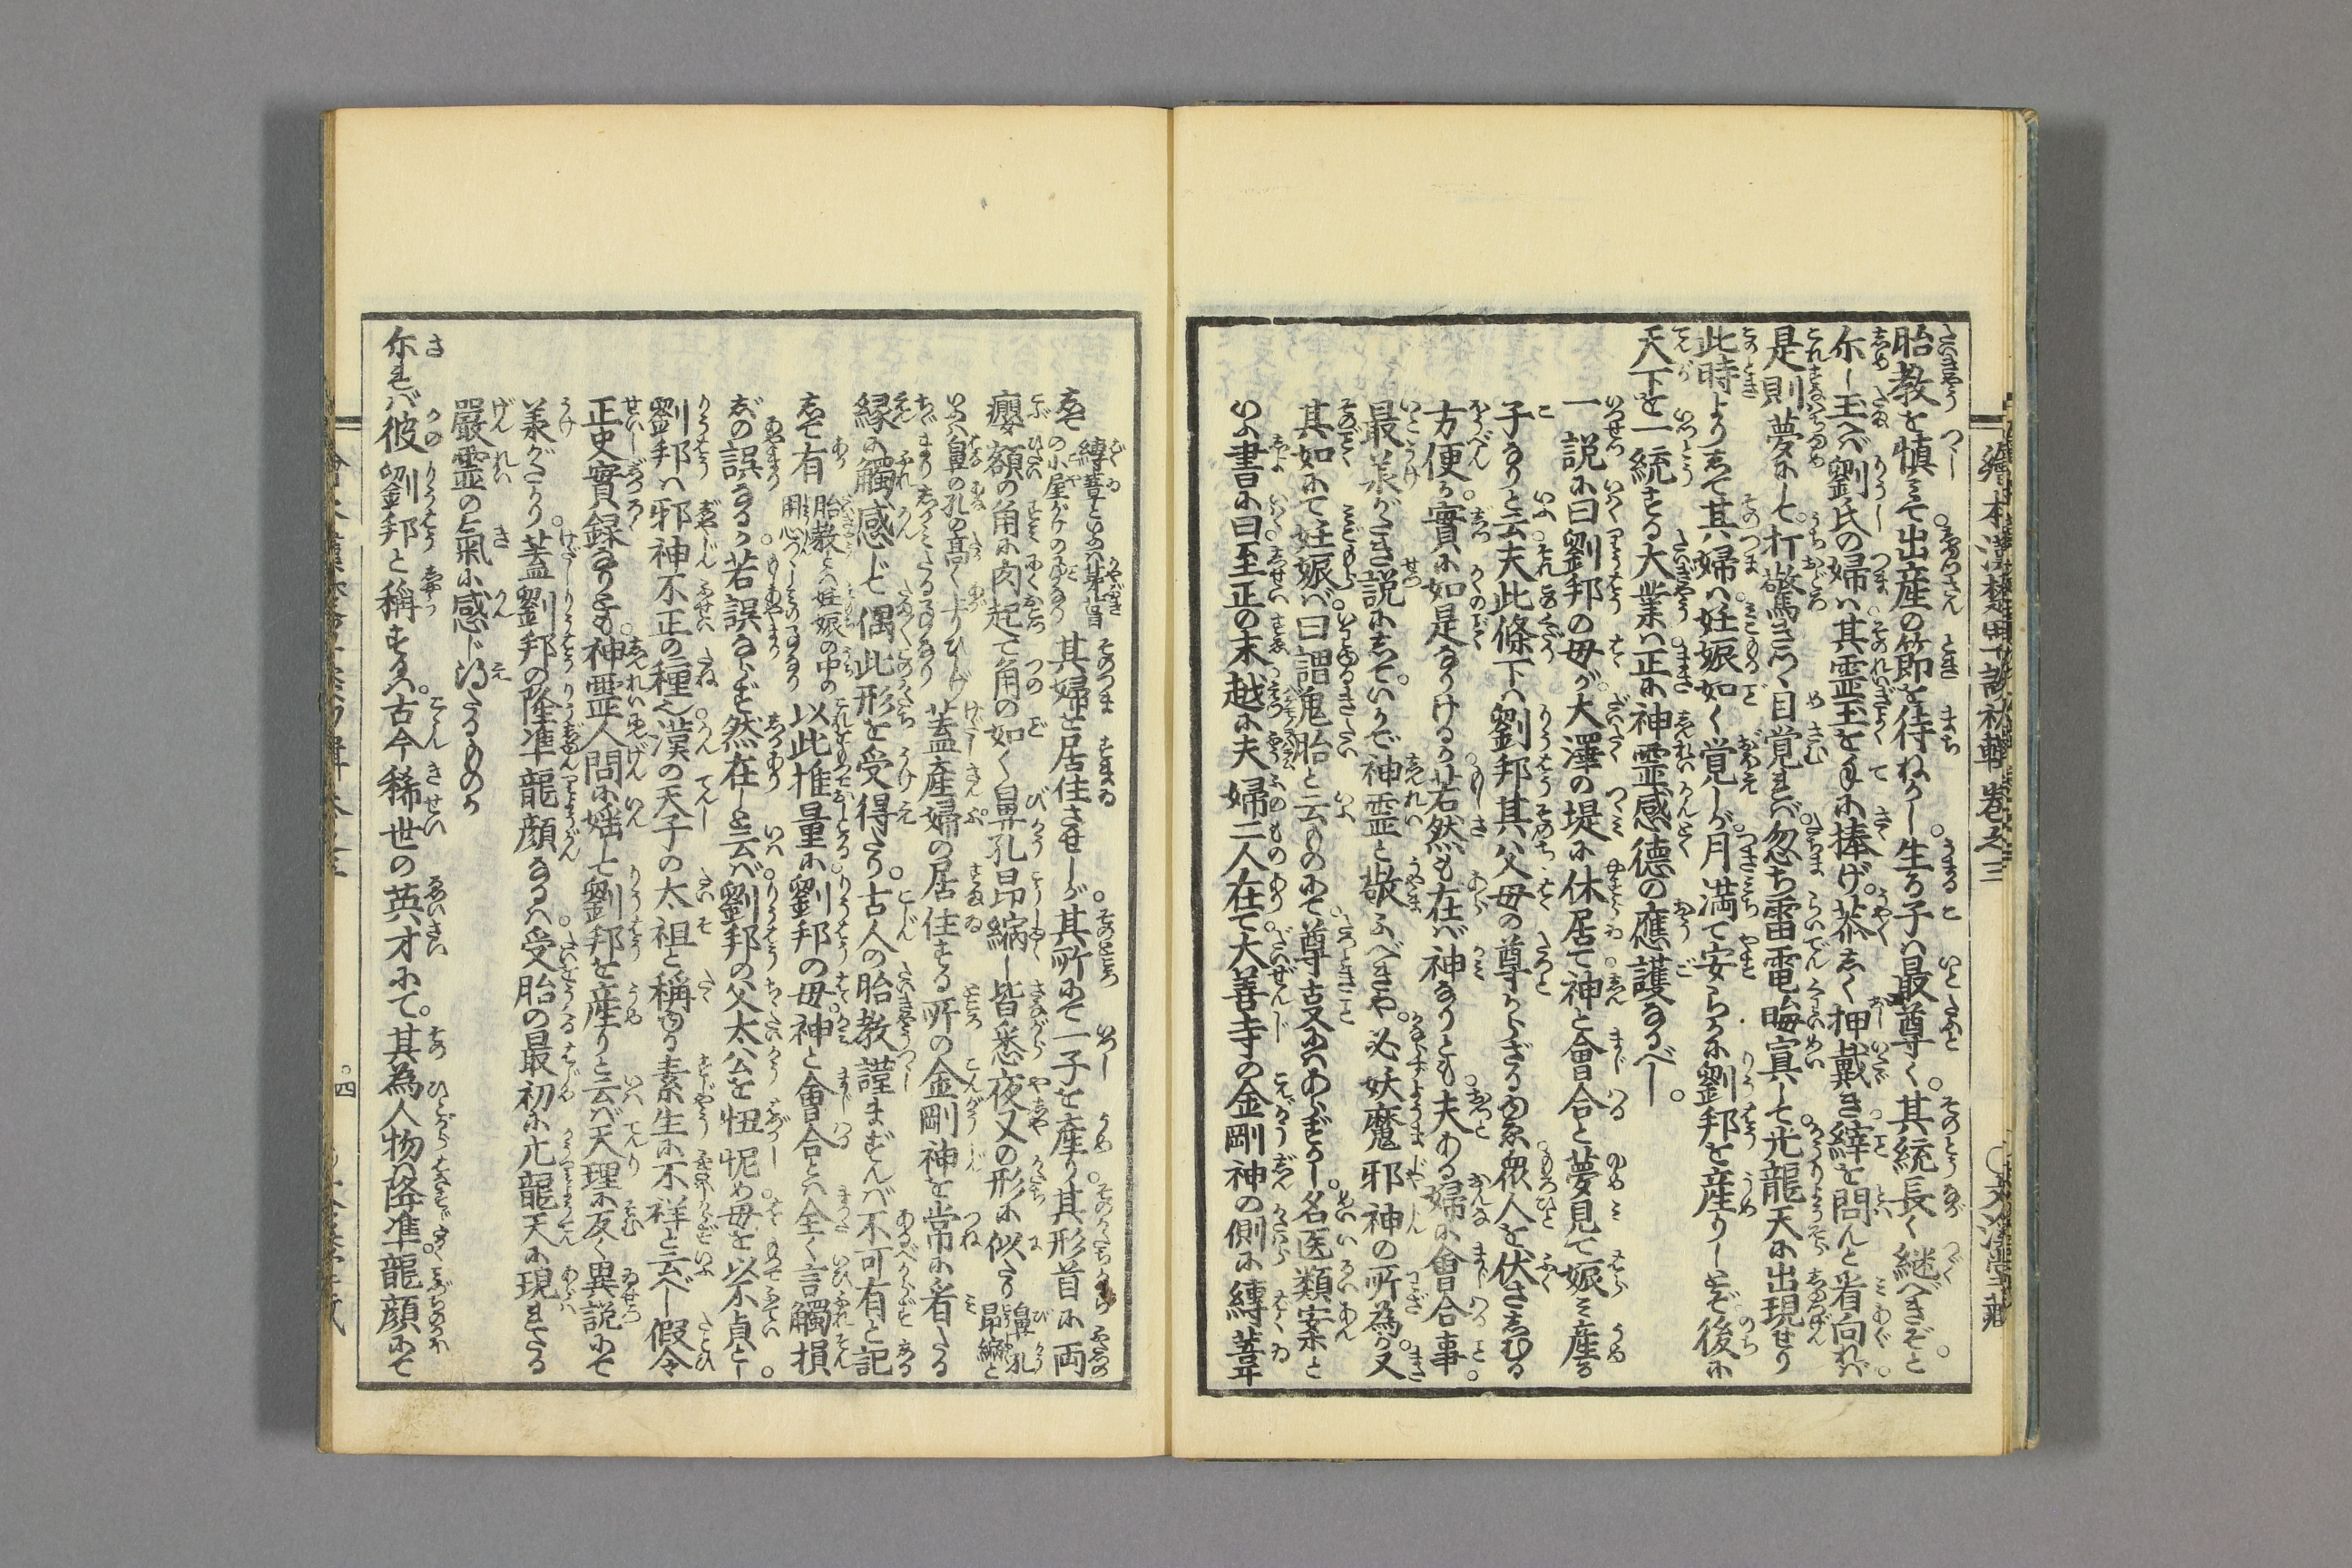 繪本漢楚軍談初輯巻之三
文溪堂藏
胎教を慎みて出産の節を待ねかし。生る子は最尊く。其統長く継べきぞと。
尓し玉へバ劉氏の婦は其霊玉を手に捧げ。恭しく押戴き。縡を問んと看向れバ。
是則夢にして。打驚きつゝ目覚れバ。忽ち雷電晦冥して。光龍天に出現せり
此時よりして其婦は。妊娠如く覚しが。月満て安らかに劉邦を産りしとぞ。後に
天下を一統する大業は。正に神霊感徳の應護なるべし。
一説に曰劉邦の母が。大澤の堤に休居て。神と會合と夢見て娠み産る
子なりと云。夫此條下は。劉邦其父母の尊からざるゆゑ。衆人を伏さしむる
方便か。實に如是なりけるか。若然も在バ。神なりとも。夫ある婦に會合事。
最羨がたき説にして。いかで神霊と敬ふべきや。必妖魔邪神の所為か。又
其如にて妊娠バ。曰謂鬼胎と云ものにて。尊古又にはあらざるかし。名医類案と
いふ書に曰。至正の末越に夫婦二人在て。大善寺の金剛神の側に縛葦
して 縛葦といふは葦簀の小屋がけの事なり 其婦と居住させしが。其所にて一子を産り。其形首に両
癭。額の角に肉起て角の如く。鼻孔昂縮し。皆悉夜叉の形に似たり 鼻孔昂縮と
いふは鼻の孔の高く上りひしげちゞまりしゞみたる事なり 蓋産婦の居住する所の金剛神を常に看たる
縁に觸感じて。偶此形を受得たり。古人の胎教謹まずんバ不可有と記
して有 胎教とは妊娠の中の用心つゝしみの事なり 以此推量に。劉邦の母。神と會合とは全く言觸損
じの誤なるか。若誤ならず。然在しと云バ。劉邦の父太公を忸怩め。母を以不貞とし。
劉邦は邪神不正の種也。漢の天子の太祖と稱ゆる。素生に不祥と云べし。假令
正史實録なりとも。神霊人間に婬して。劉邦を産りと云バ。天理に反く異説にて
羨がたし。蓋劉邦の隆準龍顔なるは。受胎の最初に光龍天に現れたる
嚴霊の氣に感じ得たるものか
尓れバ彼劉邦と稱するは。古今稀世の英才にて。其為人物。隆準。龍顔にて
四